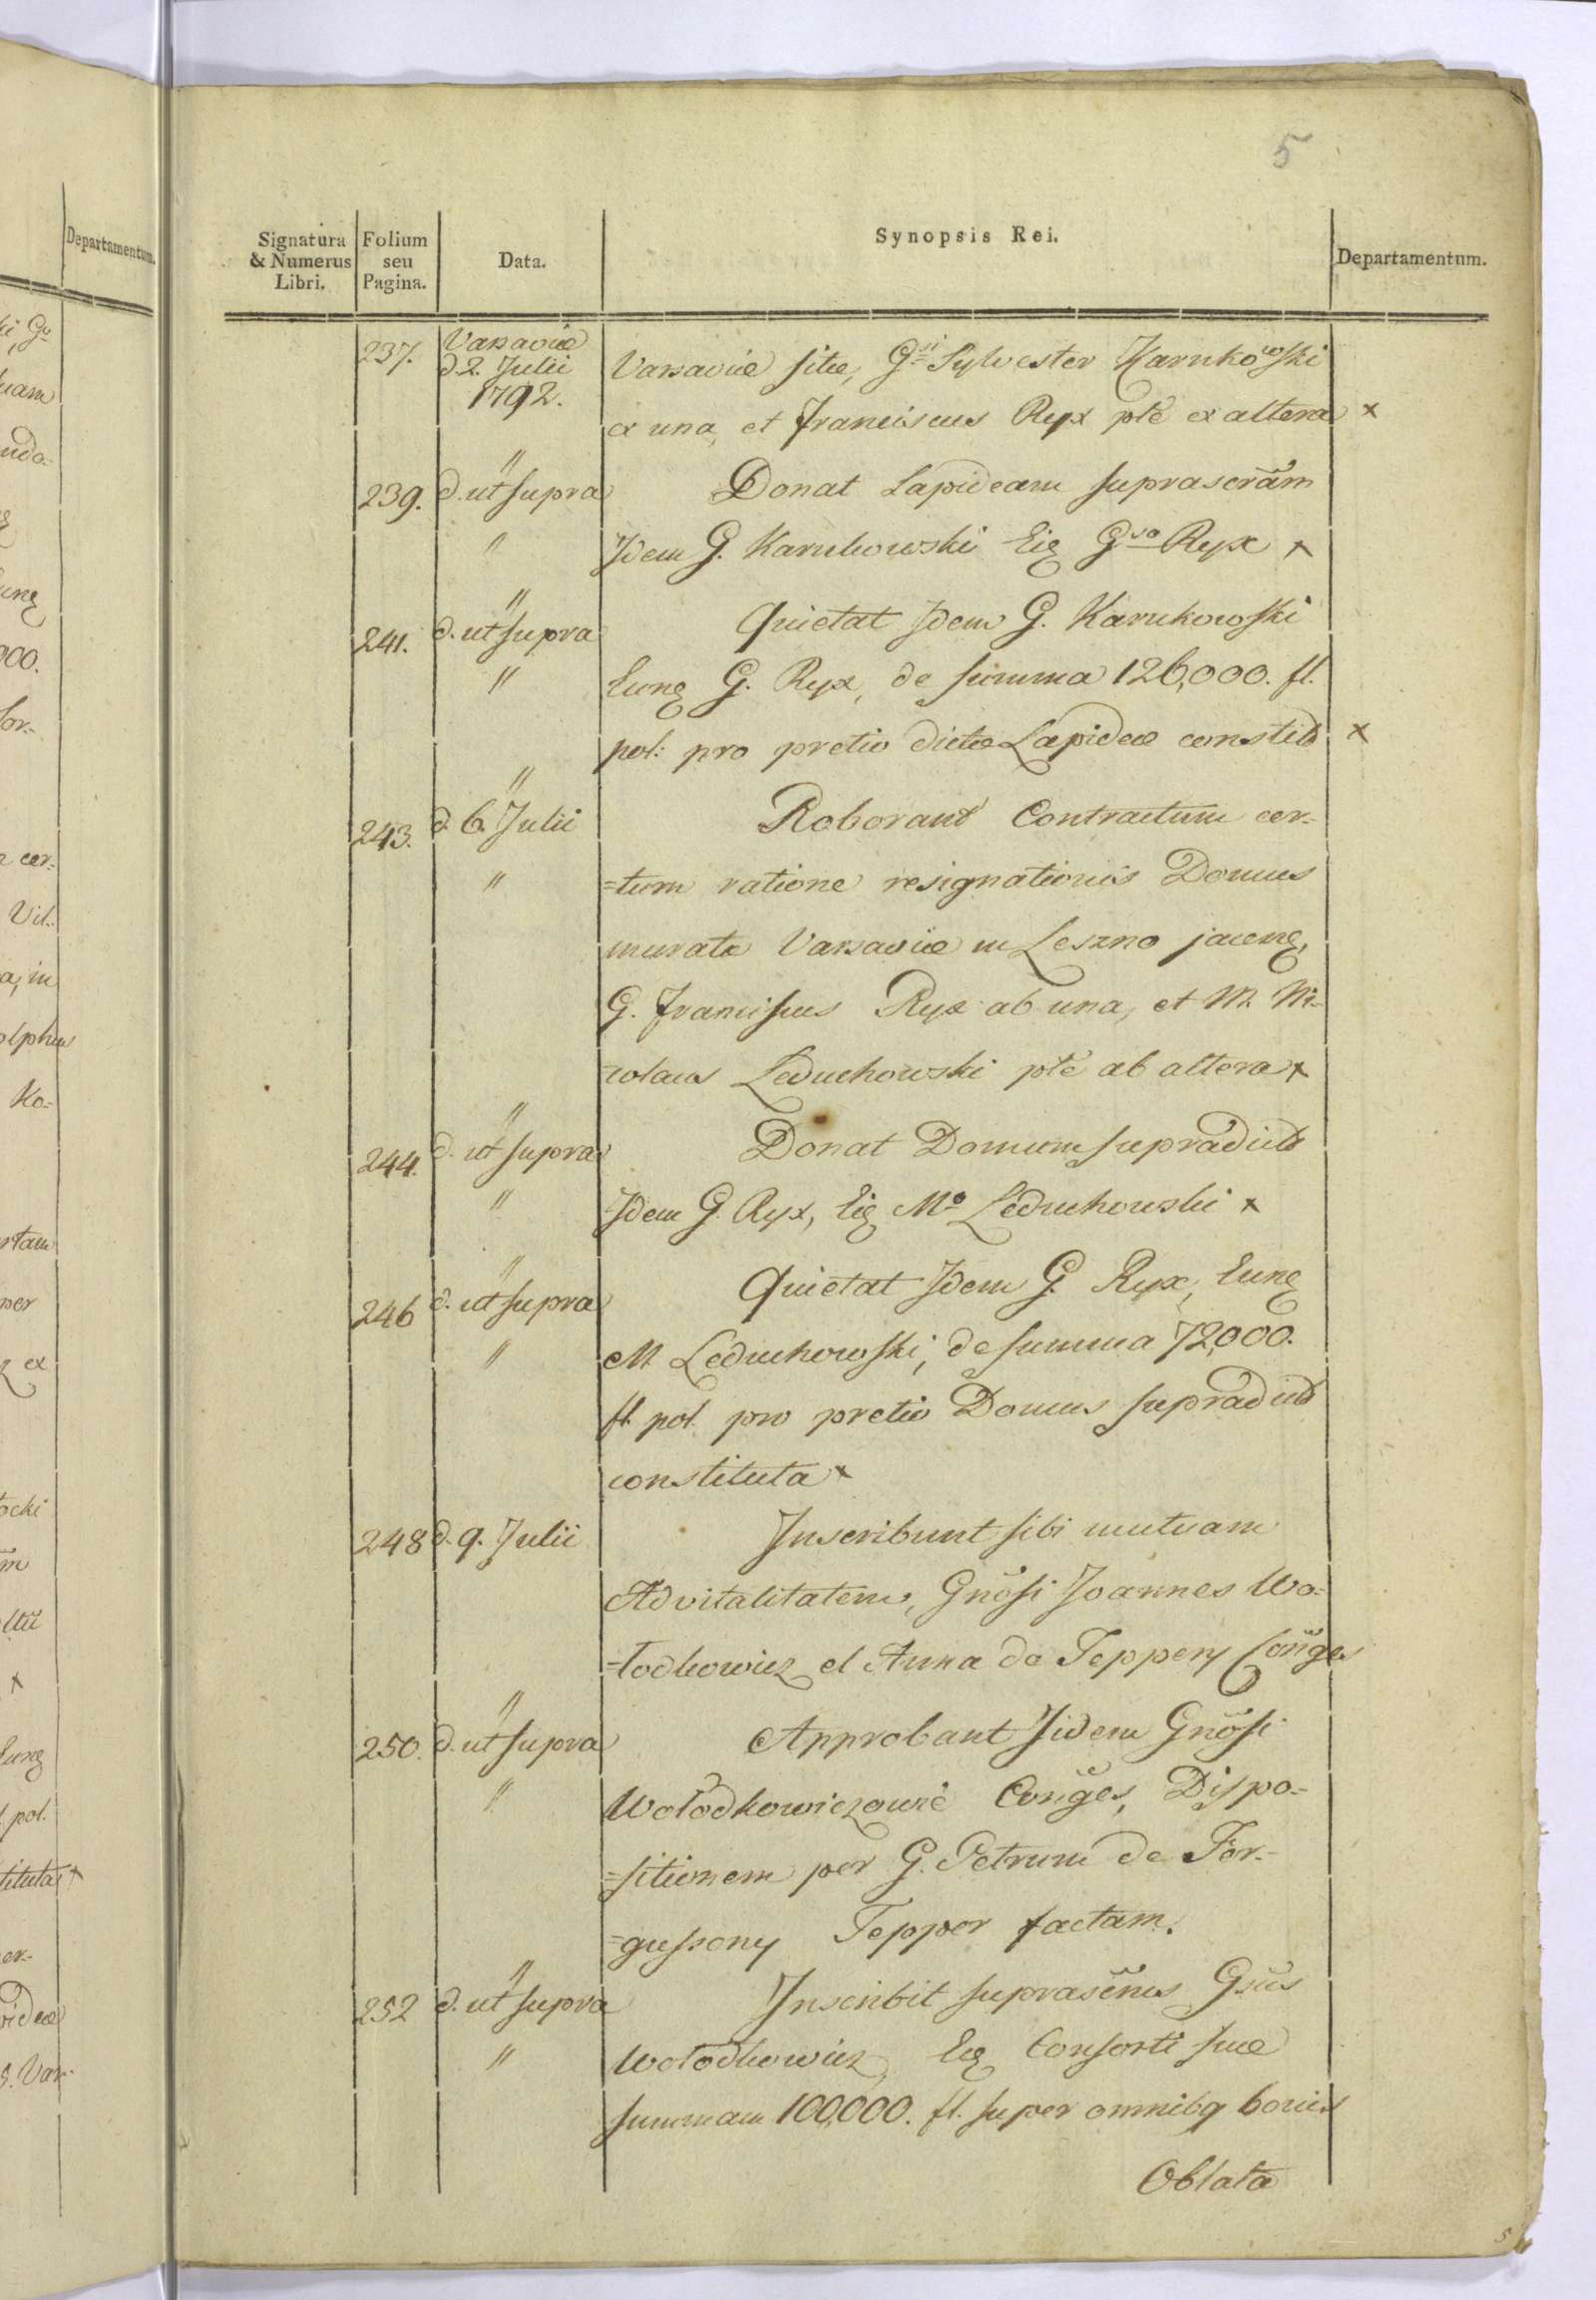 5
Signatura & Numerus Libri. Folium seu Pagina. Data. Synopsis Rei. Departamentum.
237. Varsaviæ d. 2. Julii 1792. Varsaviæ sitæ, Gsi Sylvester Karnkowski
ex una, et Franciscus Ryx pte ex altera x
239. d. ut supra Donat Lapideam suprascram
" Idem G. Karnkowski Eiq Gso Ryx x
241. d. ut supra Quietat Idem G. Karnkowski
" Eunq G. Ryx, de summa 126,000. fl.
pol: pro pretio dictæ Lapideæ constit x
243. d. 6. Julii Roborant Contractum cer-
" =tum ratione resignationis Domus
muratæ Varsaviæ in Leszno jacenq,
G. Franciscus Ryx ab una, et M. Ni-
=colaus Leduchowski pte ab altera x
244. d. ut supra Donat Domum supradict
" Idem G. Ryx, Eiq Mo Leduchowski x
246 d. ut supra Quietat Idem G. Ryx, Eunq
" M. Leduchowski, de summa 72,000.
fl. pol. pro pretio Domus supradict
constituta x
248 d. 9. Julii Inscribunt sibi mutuam
Advitalitatem, Gnosi Joannes Wo-
=łodkowicz et Anna de Teppery Conges
250. d. ut supra Approbant Iidem Gnosi
" Wołodkowiczowie Conges, Dispo-
=sitionem per G. Petrum de Fer-
=gussony Tepper factam.
252 d. ut supra Inscribit suprascrus Gsus
" Wołodkowicz, Eiq Consorti suæ
summam 100,000. fl. super omnibq bonis
Oblata